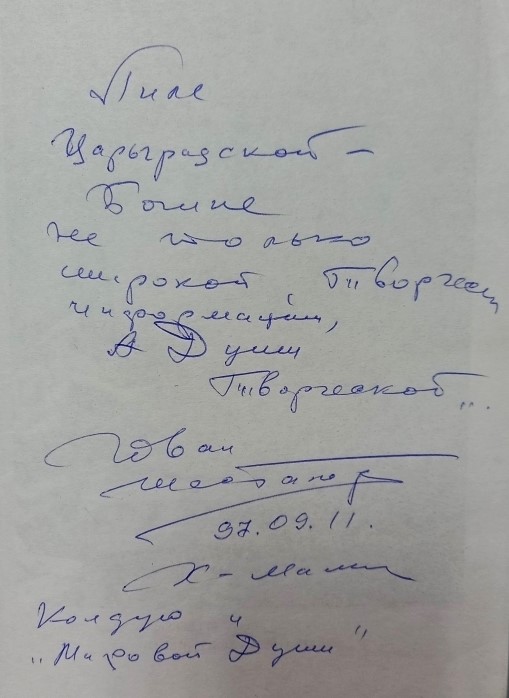 Лиле
Царьградской –
Богине
не только
широкой, Творческ
информации,
А Души
Творческой...
Иован
97.09.11.
Х-
Колдую и
"Мировой Души"